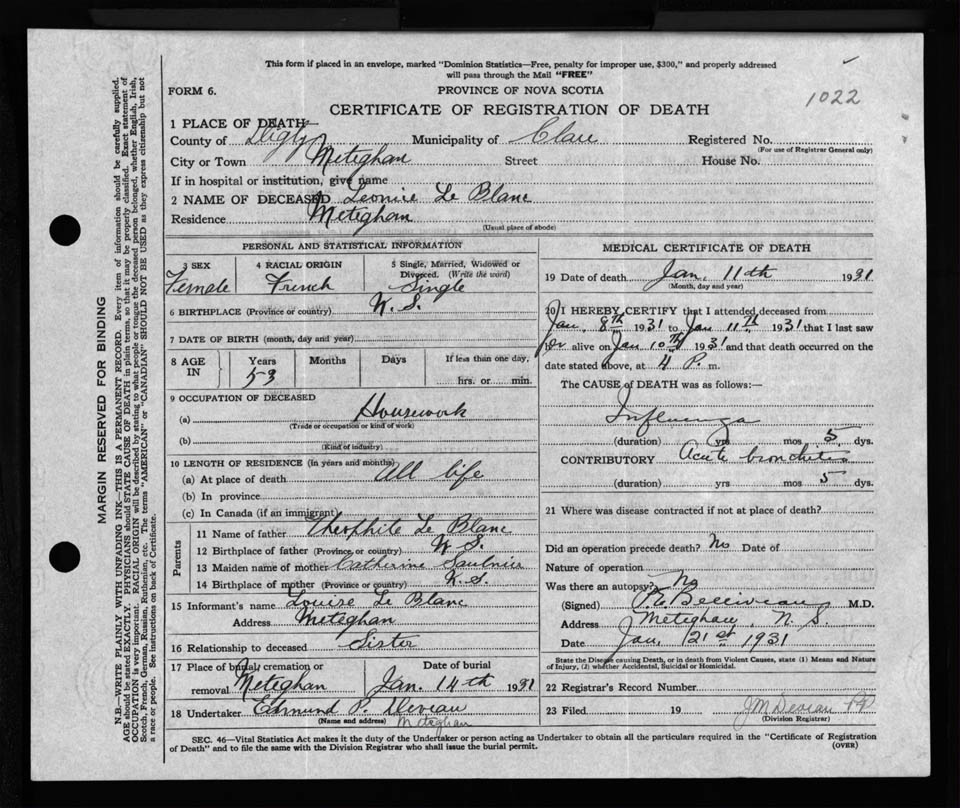 This form if placed in an envelope, marked "Dominion Statistics—Free, penalty for improper use, $300," and properly addressed
will pass through the Mail "FREE"
1022
FORM 6.
PROVINCE OF NOVA SCOTIA
CERTIFICATE OF REGISTRATION OF DEATH
1 PLACE OF DEATH—
County of Digby Municipality of Clare Registered No.
(For use of Registrar General only)
City or Town Meteghan Street House No.
If in hospital or institution, give name
2 NAME OF DECEASED Leonice Le Blanc
Residence Meteghan
(Usual place of abode)
PERSONAL AND STATISTICAL INFORMATION
3 SEX 4 RACIAL ORIGIN 5 Single, Married, Widowed or
Divorced. (Write the word)
Female French Single
6 BIRTHPLACE (Province or country) N.S.
7 DATE OF BIRTH (month, day and year)
8 AGE IN Years Months Days If less than one day,
53 hrs. or min.
9 OCCUPATION OF DECEASED
(a) Housework
(Trade or occupation or kind of work)
(b)
(Kind of industry)
10 LENGTH OF RESIDENCE (in years and months)
(a) At place of death All life
(b) In province
(c) In Canada (if an immigrant)
Parents
11 Name of father Theophile Le Blanc
12 Birthplace of father (Province or country) N.S.
13 Maiden name of mother Catherine Saulnier
14 Birthplace of mother (Province or country) N.S.
15 Informant's name Louise Le Blanc
Address Meteghan
16 Relationship to deceased Sister
17 Place of burial, cremation or Date of burial
removal Meteghan Jan. 14th 1931
18 Undertaker Edmund P. Deveau
(Name and address) Meteghan
MEDICAL CERTIFICATE OF DEATH
19 Date of death Jan. 11th 1931
(Month, day and year)
20 I HEREBY CERTIFY that I attended deceased from
Jan. 8th 1931 to Jan 11th 1931 that I last saw
her alive on Jan 10th 1931 and that death occurred on the
date stated above, at 4 P. m.
The CAUSE of DEATH was as follows:—
Influenza
(duration) yrs mos 5 dys.
CONTRIBUTORY Acute bronchitis
(duration) yrs mos 5 dys.
21 Where was disease contracted if not at place of death?
Did an operation precede death? No Date of
Nature of operation
Was there an autopsy? No
(Signed) Belliveau M.D.
Address Meteghan, N. S.
Date Jan. 21st 1931
State the Disease causing Death, or in death from Violent Causes, state (1) Means and Nature
of Injury, (2) whether Accidental, Suicidal or Homicidal.
22 Registrar's Record Number
23 Filed 19 J M Deveau
(Division Registrar)
SEC. 46—Vital Statistics Act makes it the duty of the Undertaker or person acting as Undertaker to obtain all the particulars required in the "Certificate of Registration
of Death" and to file the same with the Division Registrar who shall issue the burial permit.
(OVER)
MARGIN RESERVED FOR BINDING
N.B.—WRITE PLAINLY WITH UNFADING INK—THIS IS A PERMANENT RECORD. Every item of information should be carefully supplied.
AGE should be stated EXACTLY. PHYSICIANS should STATE CAUSE OF DEATH in plain terms, so that it may be properly classified. Exact statement of
OCCUPATION is very important. RACIAL ORIGIN will be described by stating to what people or tongue the deceased person belonged, whether English, Irish,
Scotch, French, German, Russian, Ruthenian, etc. The terms "AMERICAN" or "CANADIAN" SHOULD NOT BE USED as they express citizenship but not
a race or people. See instructions on back of Certificate.